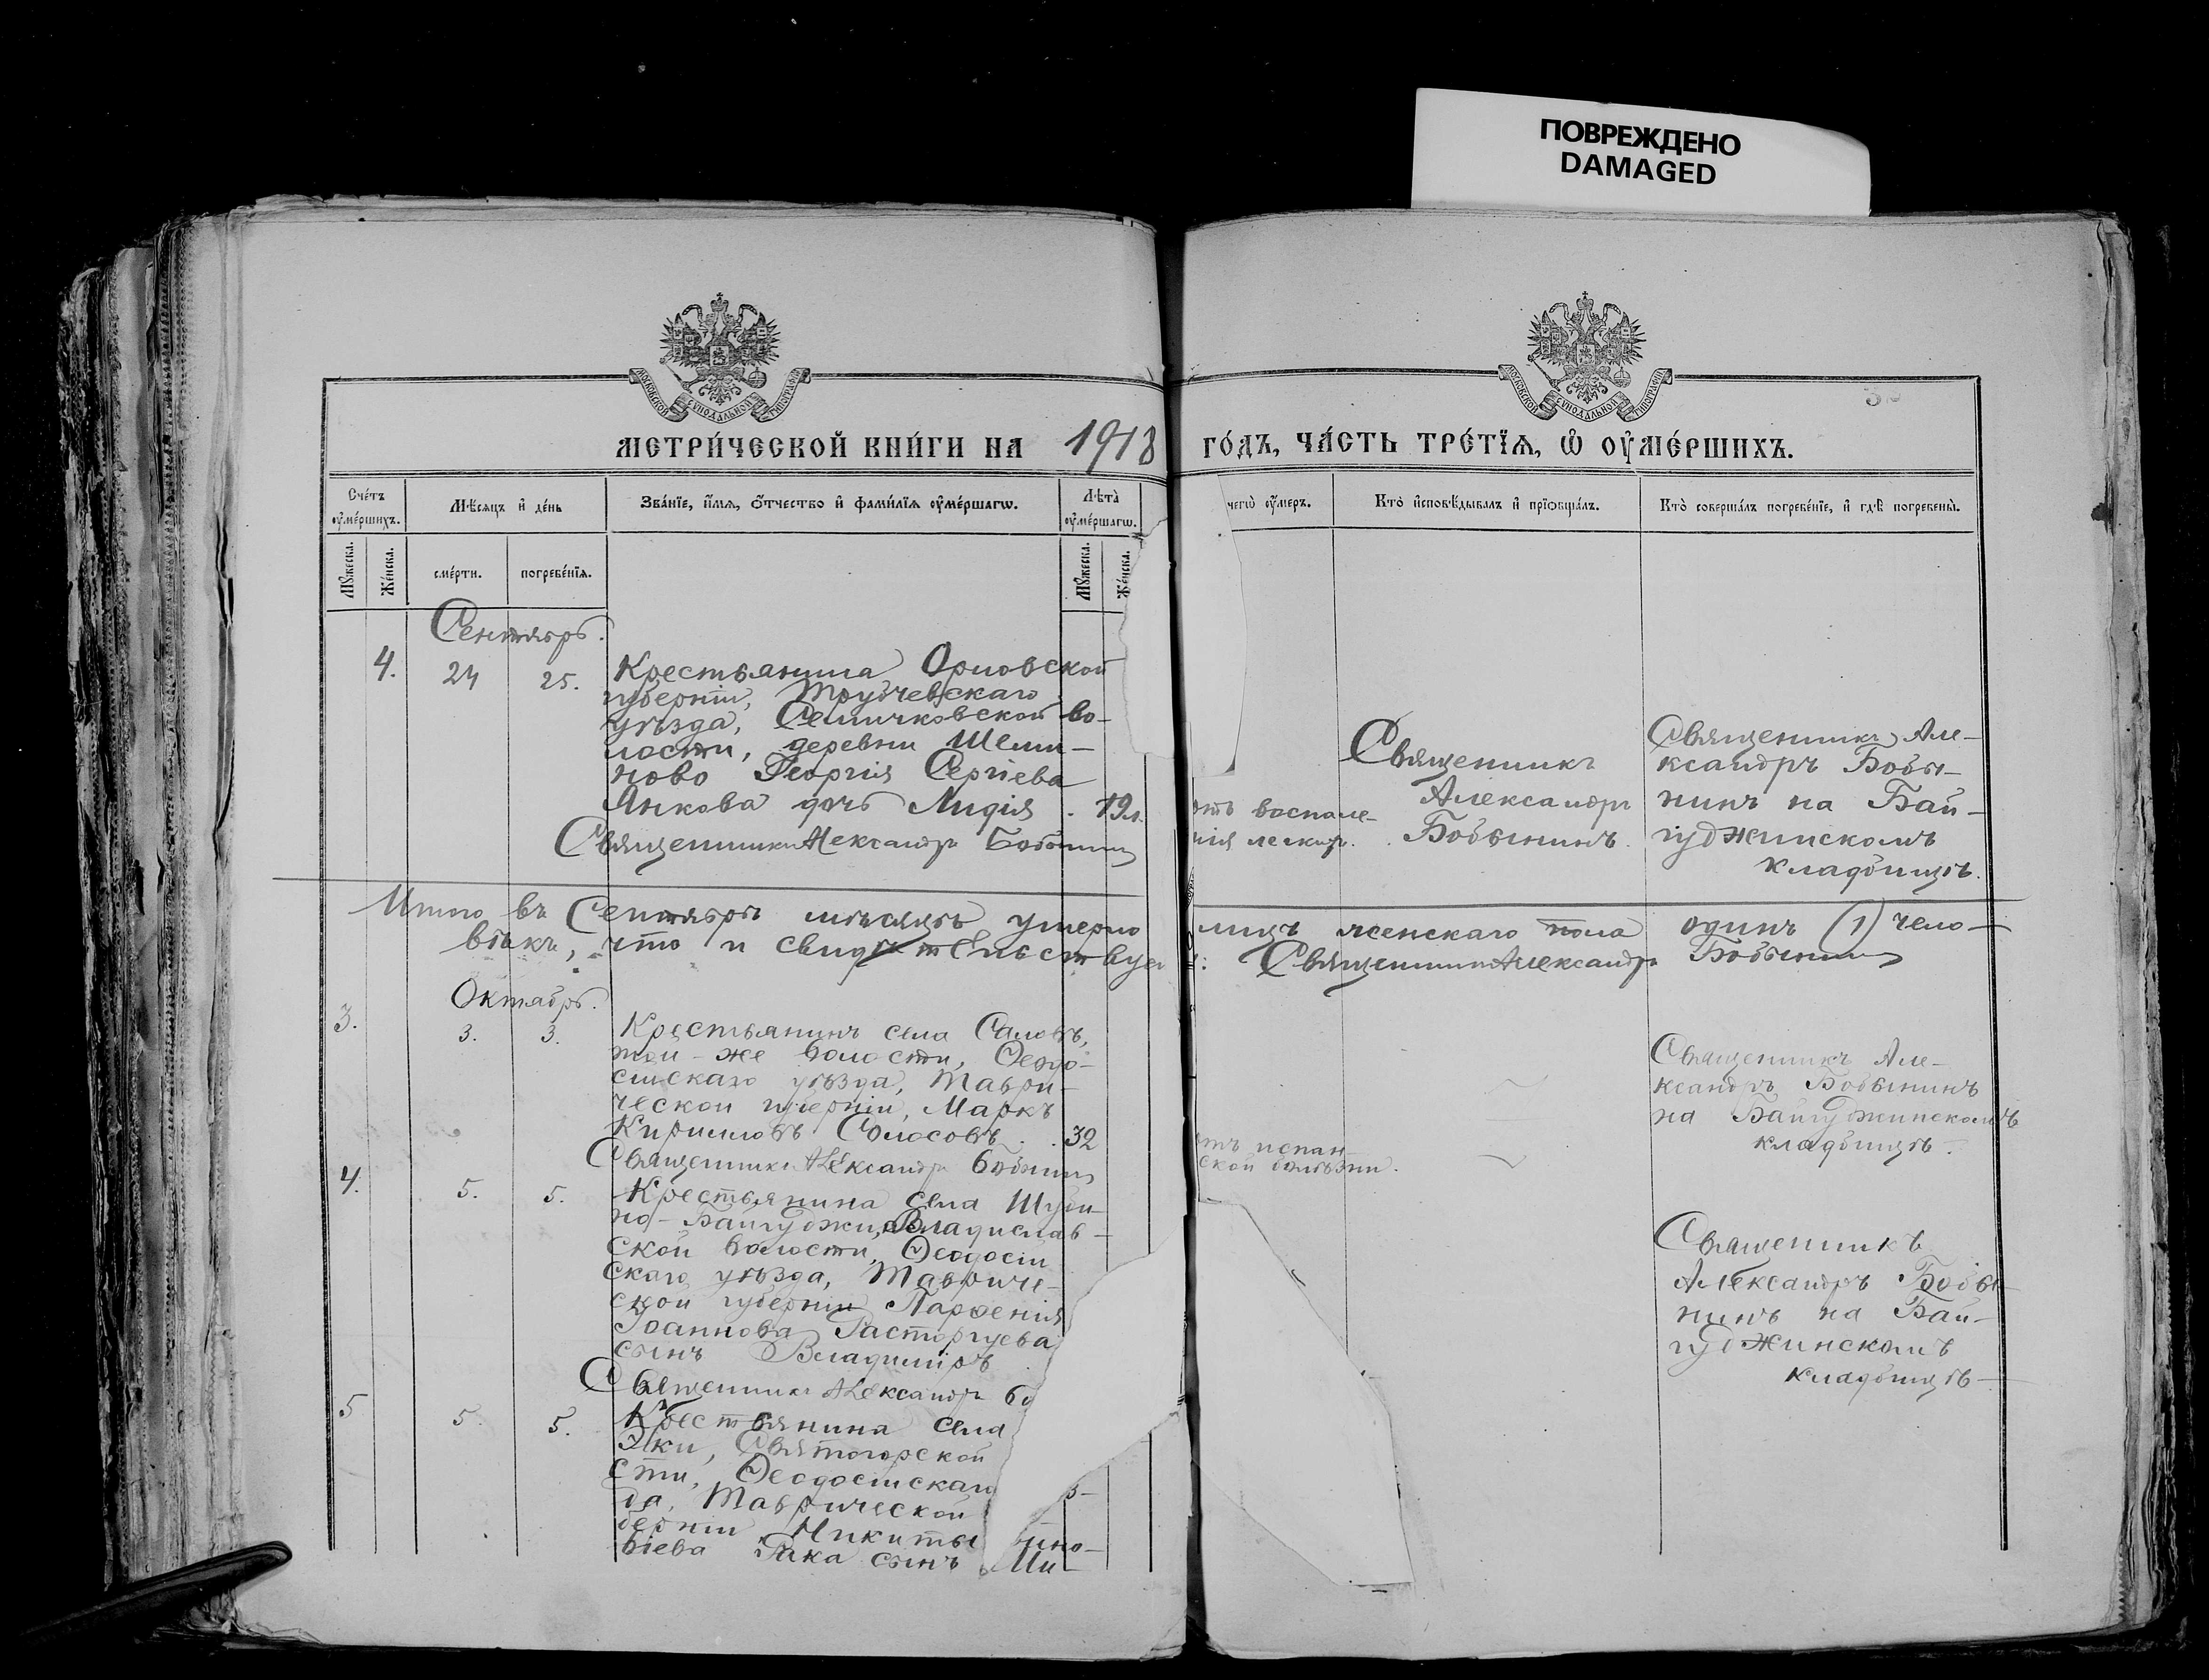 ПОВРЕЖДЕНО
DAMAGED
МОСКОВСКОЙ СУНОДАЛЬНОЙ ТИПОГРАФІИ
МОСКОВСКОЙ СУНОДАЛЬНОЙ ТИПОГРАФІИ
МЕТРИ́ЧЕСКОЙ КНИ́ГИ НА 1918
ГО́ДЪ, ЧА́СТЬ ТРЕ́ТЇѦ, Ѡ҆ ОУ҆МЕ́РШИХЪ.
Сче́тъ оу҆ме́ршихъ.
Мѣ́сѧцъ и҆ де́нь
Зва́нїе, и҆́мѧ, ѻ҆́тчество и҆ фами́лїѧ оу҆ме́ршагѡ.
Лѣ́та оу҆ме́ршагѡ.
чегѡ̀ оу҆́меръ.
Кто̀ и҆сповѣ́дывалъ и҆ прїѡбща́лъ.
Кто̀ соверша́лъ погребе́нїе, и҆ гдѣ̀ погребены̀.
Мꙋ́жеска.
Же́нска.
сме́рти.
погребе́нїѧ.
Мꙋ́жеска.
Же́нска.
Сентябрь.
4. 24 25. Крестьянина Орловской
губерніи, Трубчевскаго
уѣзда, Семичковской во-
лости, деревни Шеми-
ново Георгія Сергіева
Янкова дочь Лидія . 19 л.
Священникъ Александръ Бобынин
отъ воспале-
нія легких.
Священникъ
Александръ
Бобынинъ.
Священникъ Але-
ксандръ Бобы-
нинъ на Бай-
гуджинскомъ
кладбищѣ.
Итого въ Сентябрѣ мѣсяцѣ умерло лицъ женскаго пола одинъ (1) чело-
вѣкъ, что и свидѣтельствую: Священникъ Александръ Бобынин
Октябрь.
3. 3. 3. Крестьянинъ села Саловъ,
той-же волости, Ѳеодо-
сійскаго уѣзда, Таври-
ческой губерніи, Маркъ
Кирилловъ Колосовъ . . 32
Священникъ Александръ Бобынин
отъ испан-
ской болѣзни.
Священникъ Але-
ксандръ Бобынинъ
на Байгуджинскомъ
кладбищѣ.
4. 5. 5. Крестьянина села Шуби-
но-Байгуджи, Владислав-
ской волости, Ѳеодосій
скаго уѣзда, Тавриче-
ской губерніи Парѳенія
Іоаннова Расторгуева
сынъ Владиміръ
Священникъ Александръ Бо
Священникъ
Александръ Бобы-
нинъ на Бай-
гуджинскомъ
кладбищѣ
5 5. 5. Крестьянина села
Эки, Святогорской
сти, Ѳеодосійскаго
да, Таврической
берніи Никиты
віева Рака сынъ Ми-